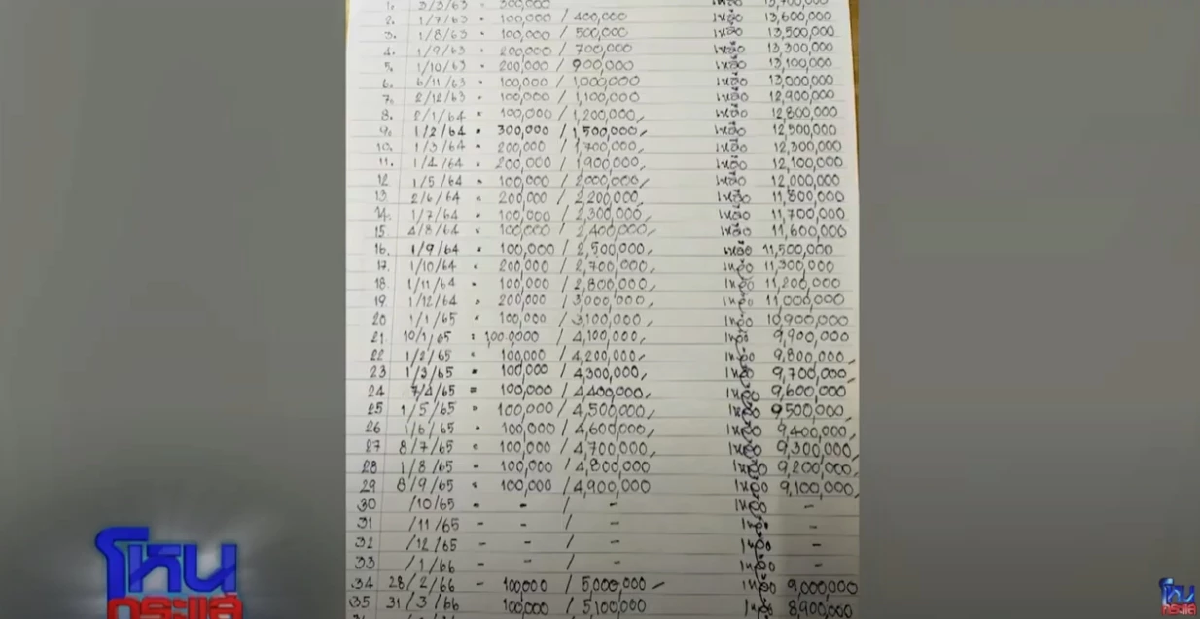 1. 3/3/63 - 300,000 เหลือ 13,700,000
2. 1/7/63 - 100,000 / 400,000 เหลือ 13,600,000
3. 1/8/63 - 100,000 / 500,000 เหลือ 13,500,000
4. 1/9/63 - 200,000 / 700,000 เหลือ 13,300,000
5. 1/10/63 - 200,000 / 900,000 เหลือ 13,100,000
6. 6/11/63 - 100,000 / 1,000,000 เหลือ 13,000,000
7. 2/12/63 - 100,000 / 1,100,000 เหลือ 12,900,000
8. 2/1/64 - 100,000 / 1,200,000 เหลือ 12,800,000
9. 1/2/64 - 300,000 / 1,500,000 เหลือ 12,500,000
10. 1/3/64 - 200,000 / 1,700,000 เหลือ 12,300,000
11. 1/4/64 - 200,000 / 1,900,000 เหลือ 12,100,000
12 1/5/64 - 100,000 / 2,000,000 เหลือ 12,000,000
13 2/6/64 - 200,000 / 2,200,000 เหลือ 11,800,000
14. 1/7/64 - 100,000 / 2,300,000 เหลือ 11,700,000
15 4/8/64 - 100,000 / 2,400,000 เหลือ 11,600,000
16. 1/9/64 - 100,000 / 2,500,000 เหลือ 11,500,000
17. 1/10/64 - 200,000 / 2,700,000 เหลือ 11,300,000
18. 1/11/64 - 100,000 / 2,800,000 เหลือ 11,200,000
19. 1/12/64 - 200,000 / 3,000,000 เหลือ 11,000,000
20 1/1/65 - 100,000 / 3,100,000 เหลือ 10,900,000
21. 10/1/65 - 100,0000 / 4,100,000 เหลือ 9,900,000
22 1/2/65 - 100,000 / 4,200,000 เหลือ 9,800,000
23 1/3/65 - 100,000 / 4,300,000 เหลือ 9,700,000
24 7/4/65 = 100,000 / 4,400,000 เหลือ 9,600,000
25 1/5/65 - 100,000 / 4,500,000 เหลือ 9,500,000
26 1/6/65 - 100,000 / 4,600,000 เหลือ 9,400,000
27 8/7/65 - 100,000 / 4,700,000 เหลือ 9,300,000
28 1/8/65 - 100,000 / 4,800,000 เหลือ 9,200,000
29 8/9/65 - 100,000 / 4,900,000 เหลือ 9,100,000
30 /10/65 - - / - เหลือ -
31 /11/65 - - / - เหลือ -
32 /12/65 - - / - เหลือ -
33 /1/66 - - / - เหลือ -
34 28/2/66 - 100,000 / 5,000,000 เหลือ 9,000,000
35 31/3/66 100,000 / 5,100,000 เหลือ 8,900,000
โหนกระแส
โหนกระแส